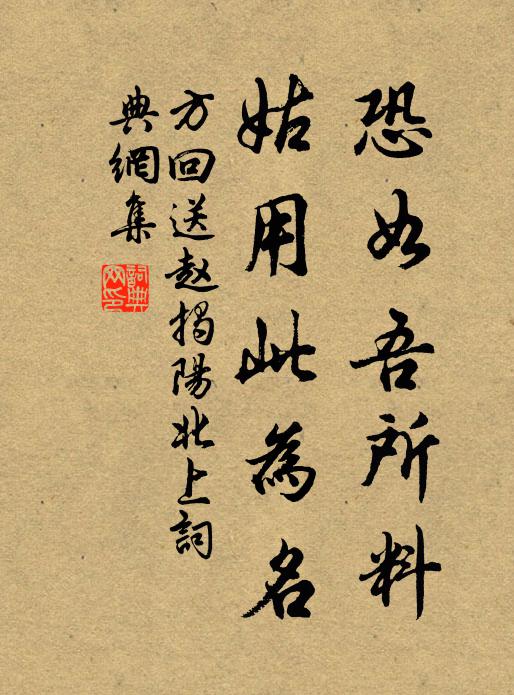 恐如吾所料
姑用此為名
方回送赵揭陽北上詞
典網集
詞典網印